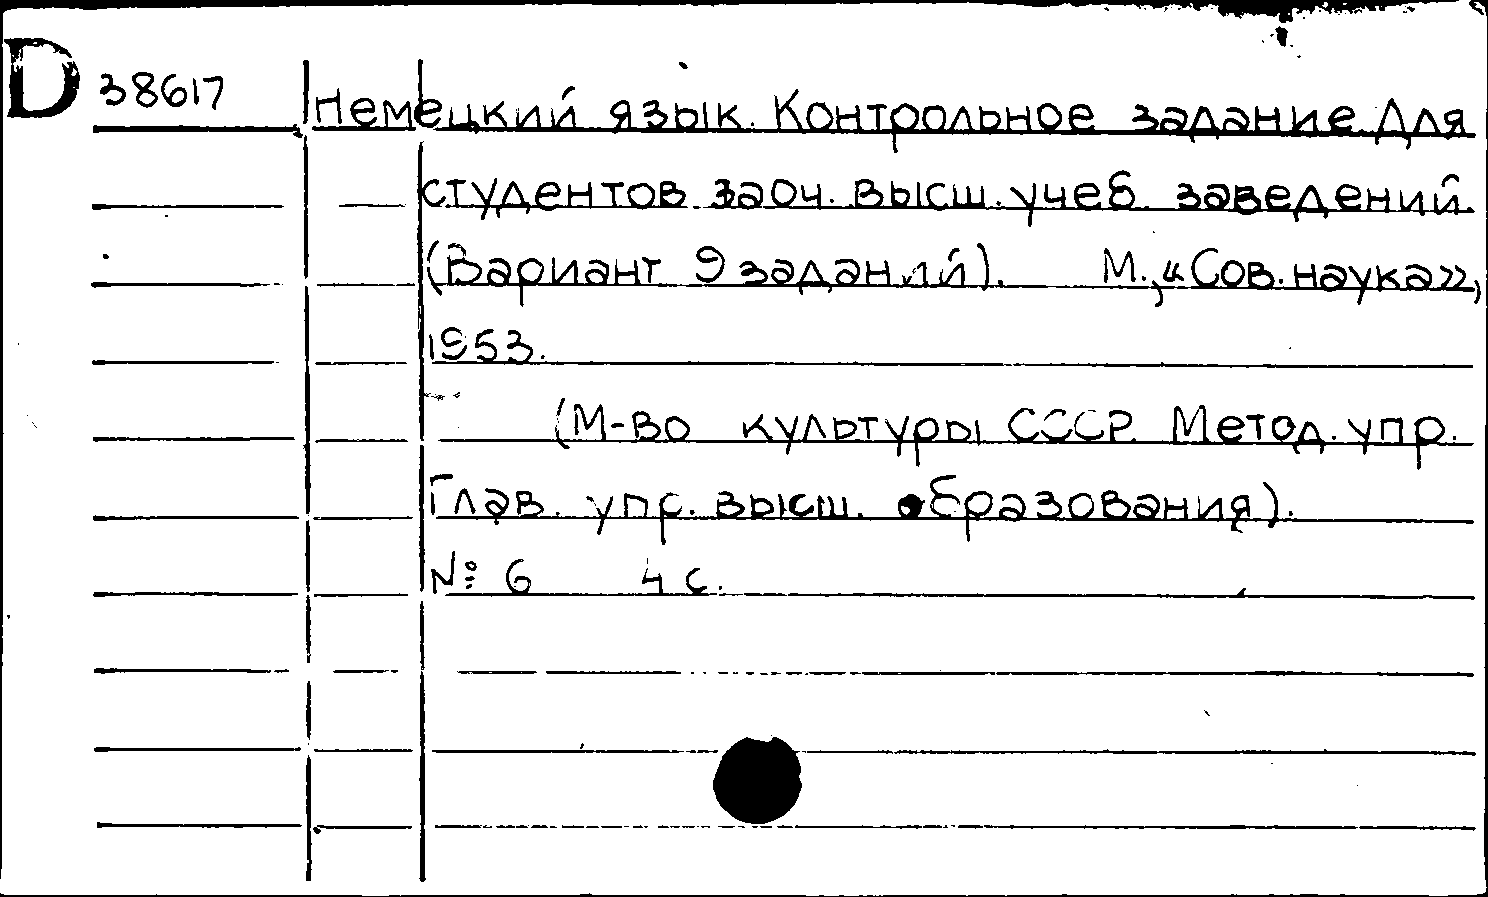 D 38617 Немецкий язык. Контрольное задание. Для
студентов заоч. высш. учеб. заведений.
(Вариант 9 заданий). М., «Сов. наука»,
1953.
(М-во культуры СССР. Метод. упр.
Глав. упр. высш. образования).
№ 6 4 с.